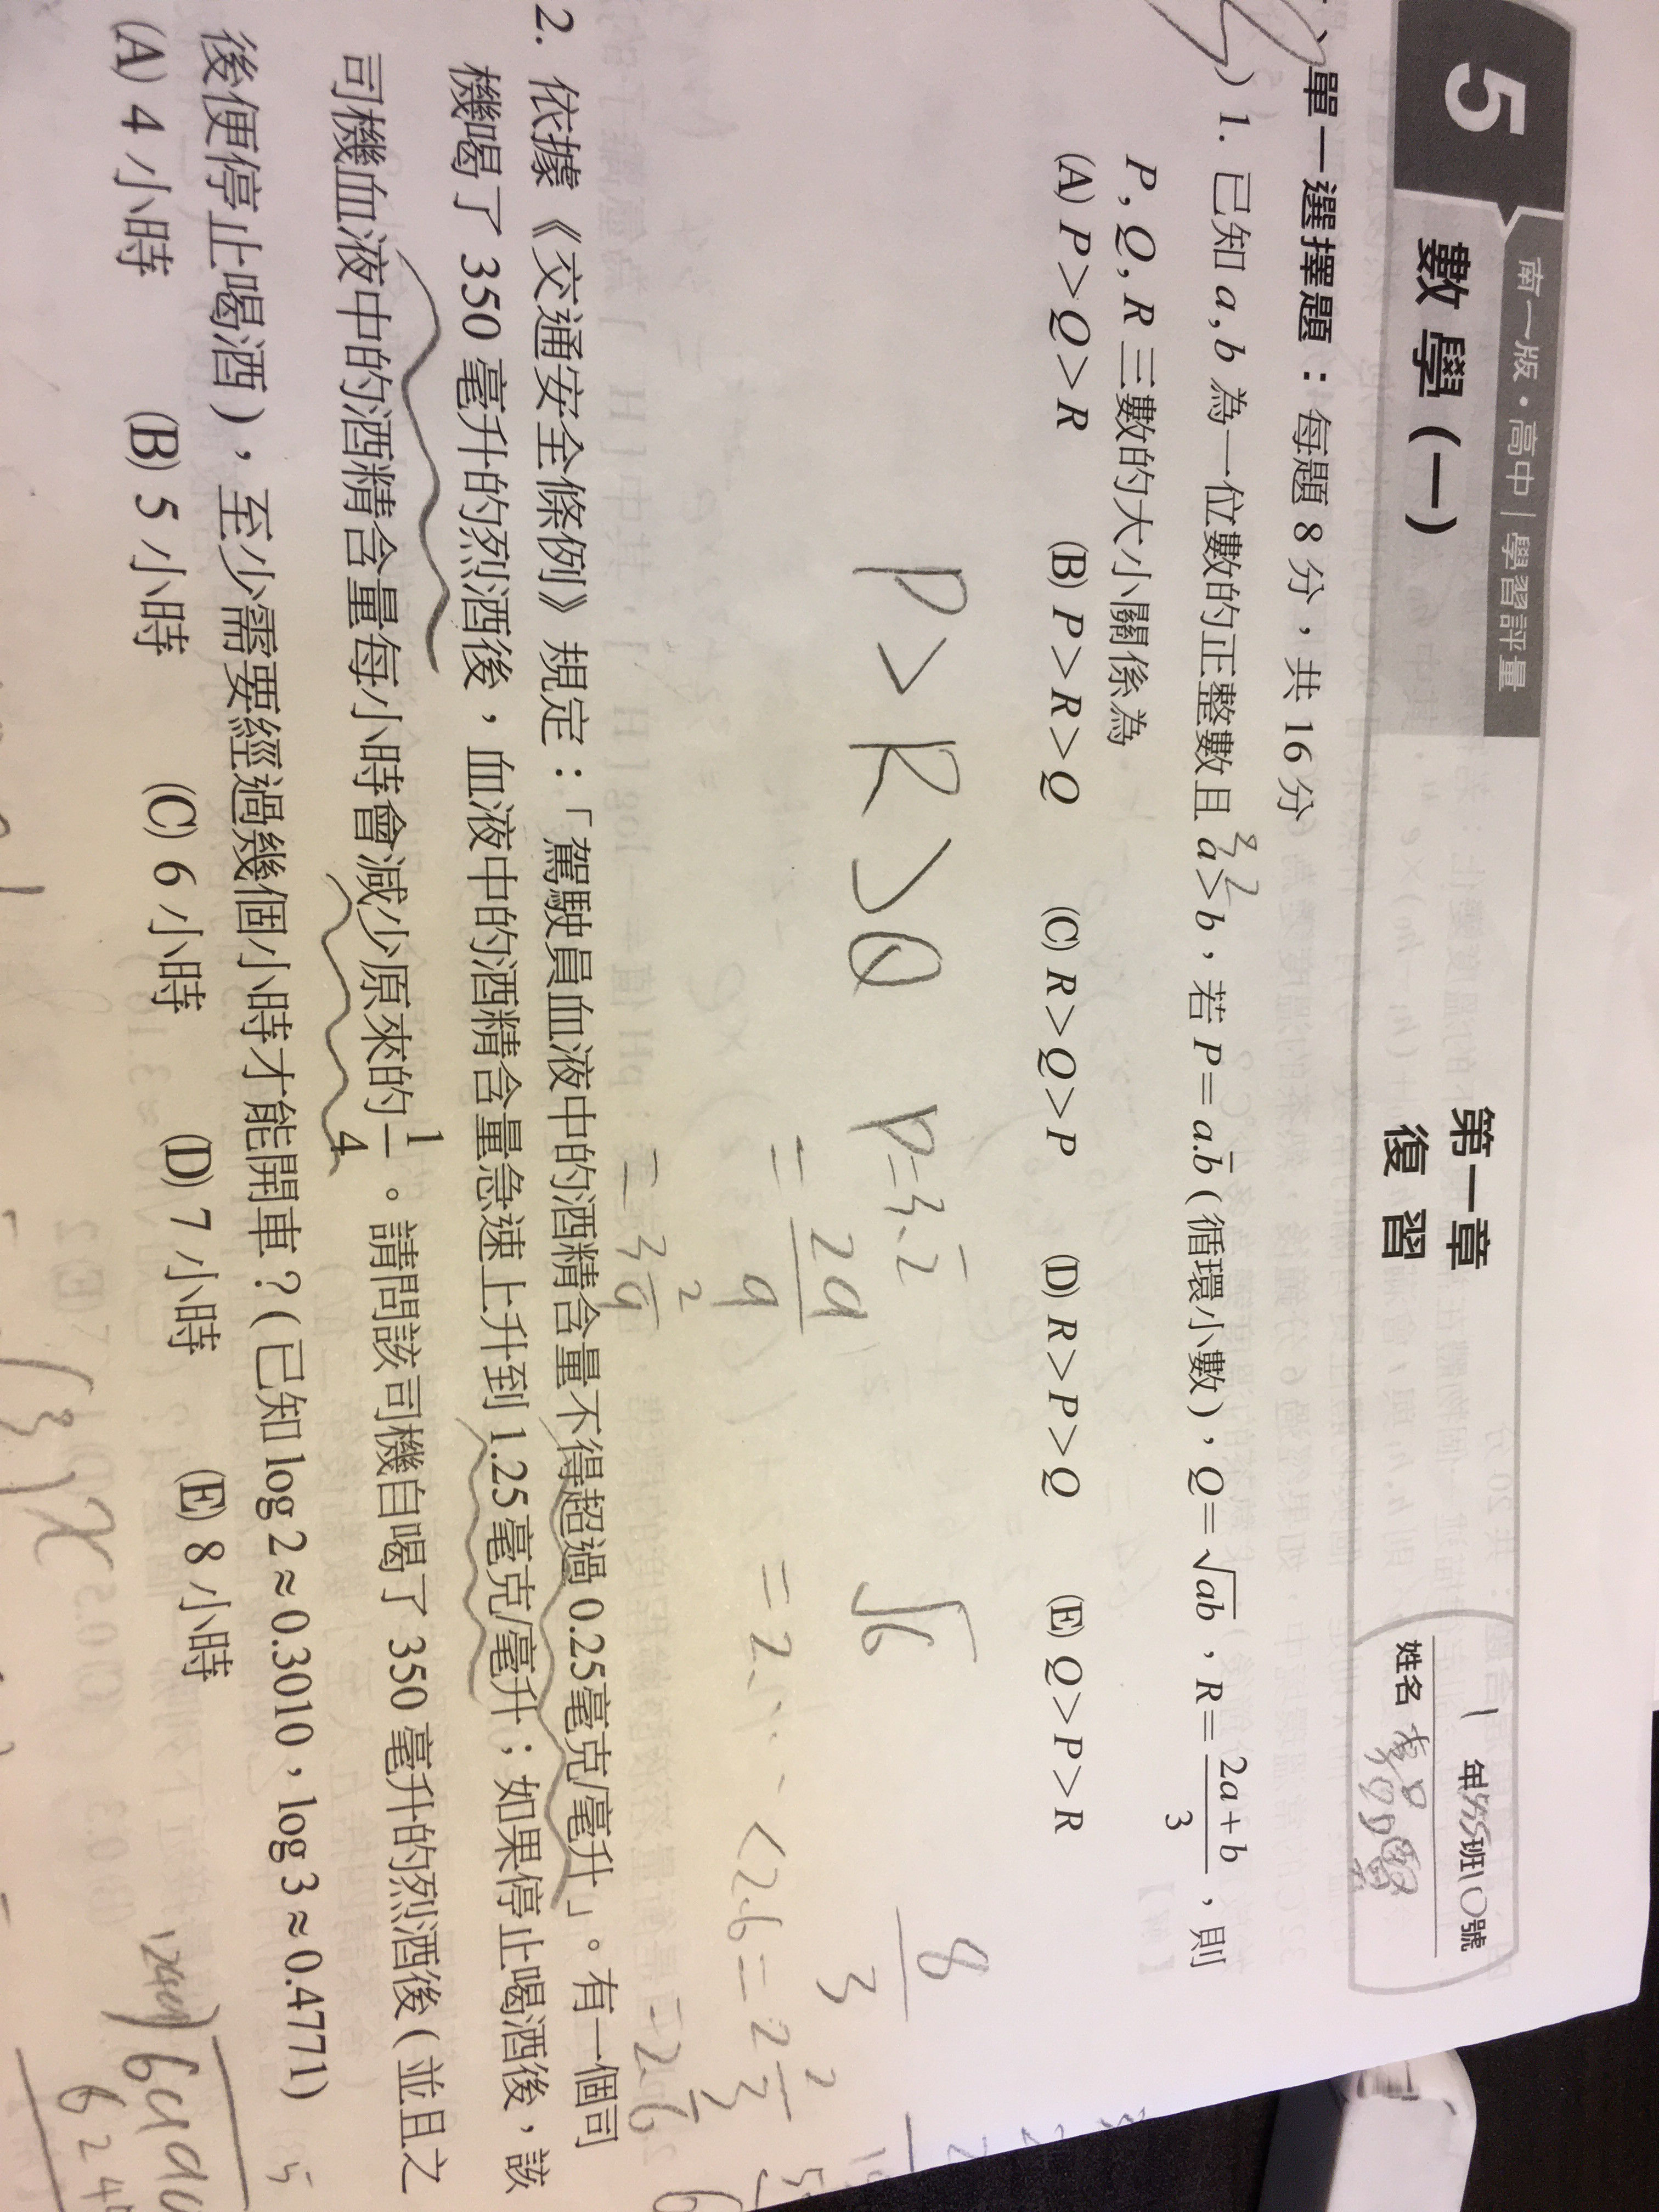 5
南一版・高中|學習評量
數學(一)
第一章
復習
1 年 班10號
姓名
、單一選擇題：每題 8 分，共 16 分
) 1. 已知 a, b 為一位數的正整數且 a > b，若 P = a.b̅ (循環小數)，Q = √ab，R = (2a+b)/3，則
3 2
P, Q, R 三數的大小關係為
(A) P > Q > R (B) P > R > Q (C) R > Q > P (D) R > P > Q (E) Q > P > R
P > R > Q P=3.2̅ √6 8/3
= 29/9 = 2. <2.6 = 2 2/3
= 3 2/9
2. 依據《交通安全條例》規定：「駕駛員血液中的酒精含量不得超過 0.25毫克/毫升」。有一個司
機喝了 350 毫升的烈酒後，血液中的酒精含量急速上升到 1.25毫克/毫升；如果停止喝酒後，該
司機血液中的酒精含量每小時會減少原來的 1/4。請問該司機自喝了 350 毫升的烈酒後 (並且之
後便停止喝酒)，至少需要經過幾個小時才能開車？(已知 log 2 ≈ 0.3010，log 3 ≈ 0.4771)
(A) 4 小時 (B) 5 小時 (C) 6 小時 (D) 7 小時 (E) 8 小時